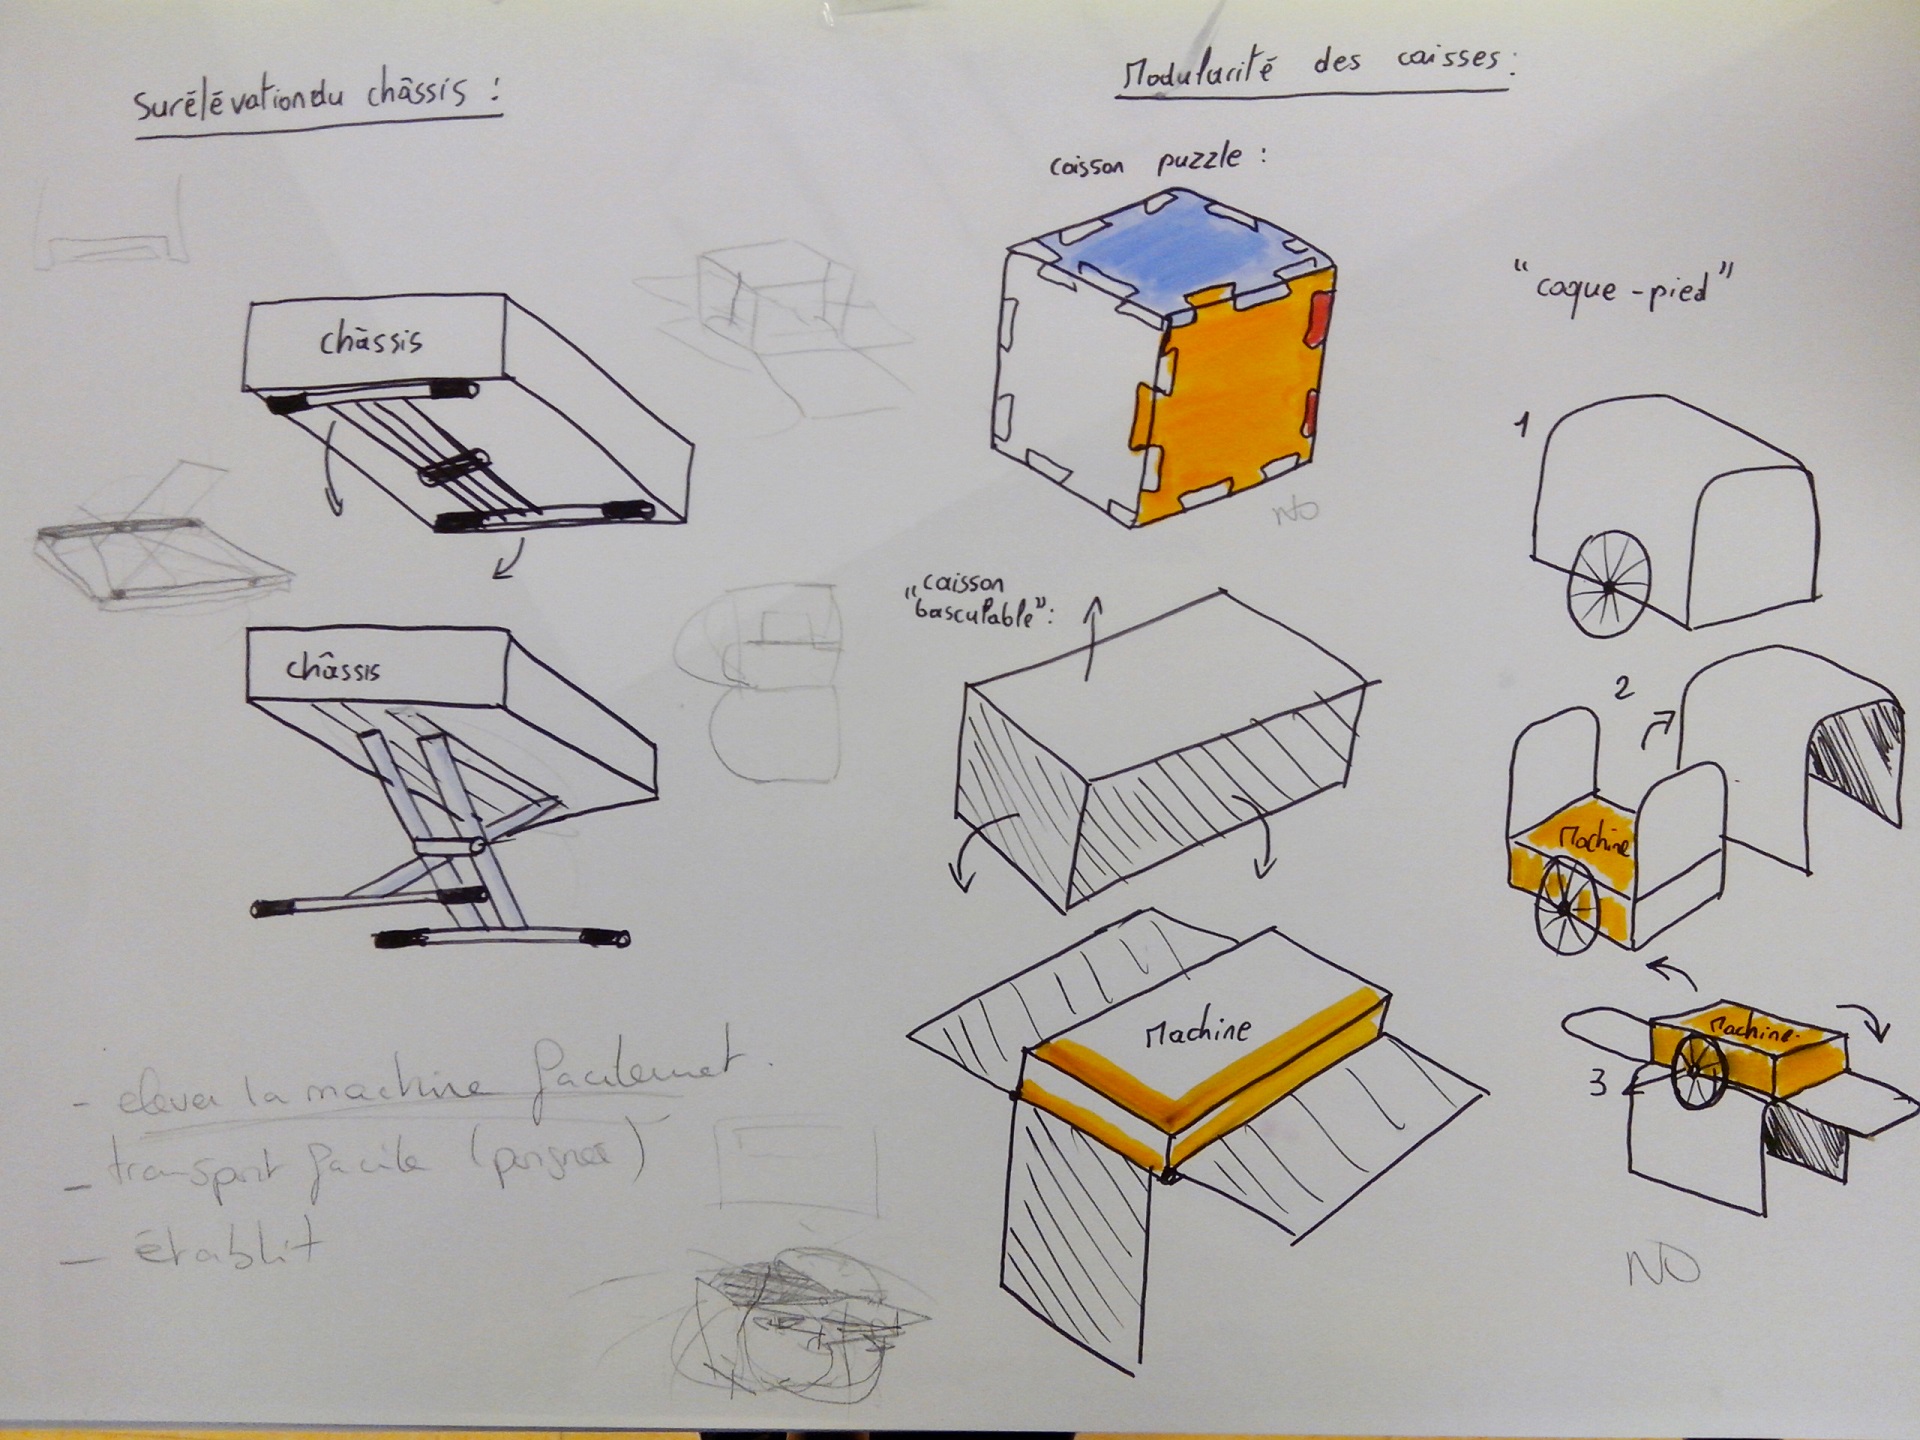 Surélévation du châssis :
châssis
châssis
- elever la machine facilemet.
- transport facile (poignée)
- établit
Modularité des caisses :
caisson puzzle :
NO
"caisson
basculable" :
Machine
"coque-pied"
1
2
Machine
3
Machine
NO